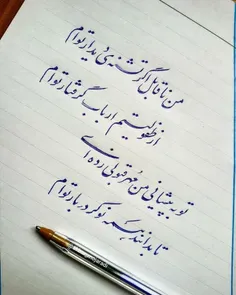 من ناقابل اگر تشنه‌ی دیدار توام
از طفولیتم ارباب گرفتار توام
تو به پیشانی من مهر قبولی زده ای
تا بدانند همه نوکر دربار توام